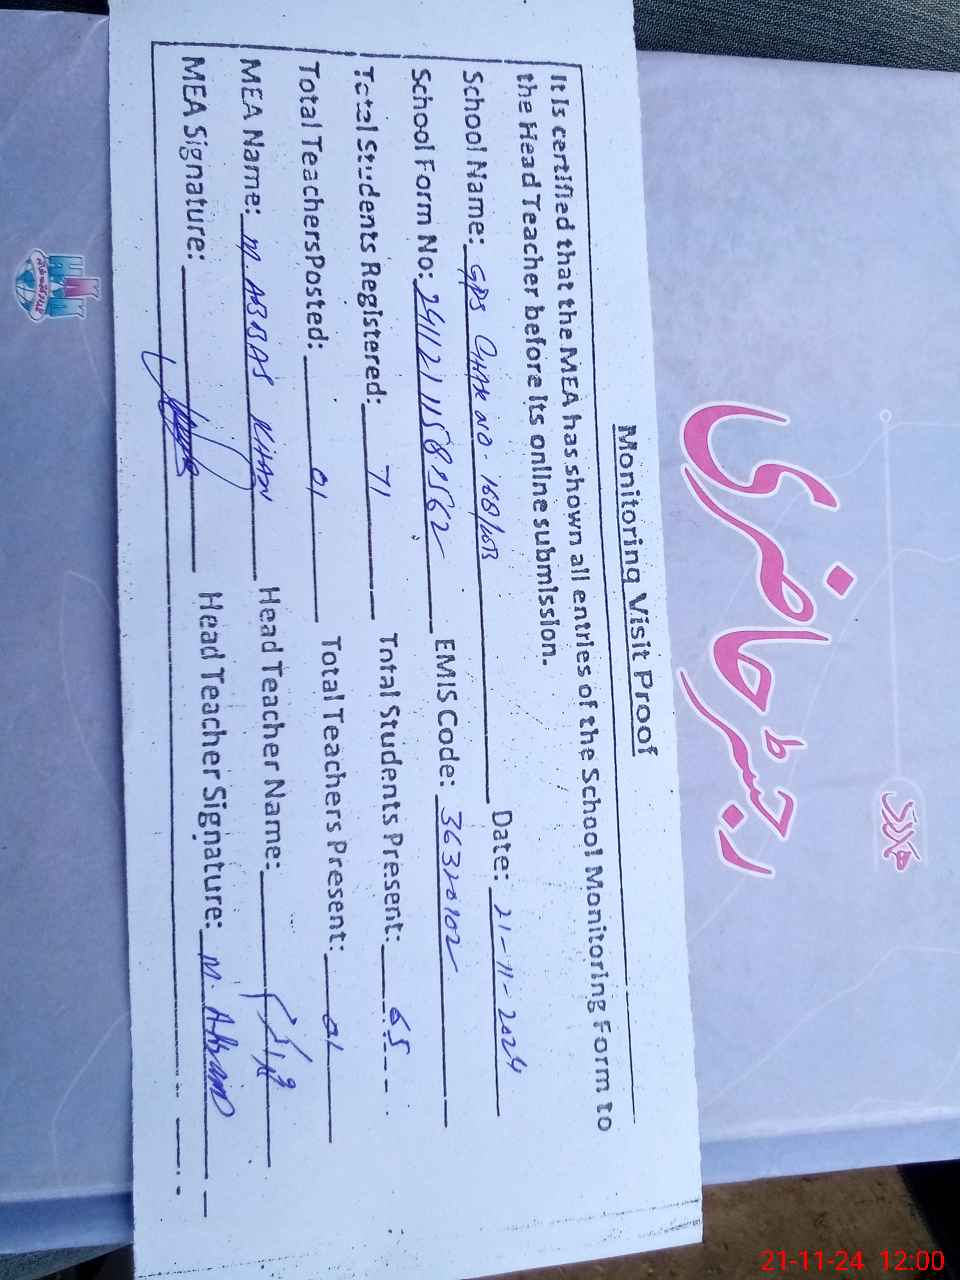 ہمارا
رجسٹر حاضری
Monitoring Visit Proof
It is certified that the MEA has shown all entries of the School Monitoring Form to
the Head Teacher before its online submission.
School Name: GPS CHAK NO. 168/WB Date: 21-11-2024
School Form No: 241121158562 EMIS Code: 36320102
Total Students Registered: 71 Total Students Present: 65
Total Teachers Posted: 01 Total Teachers Present: 01
MEA Name: M. ABBAS KHAN Head Teacher Name:
MEA Signature: Head Teacher Signature: M. Akram
21-11-24 12:00